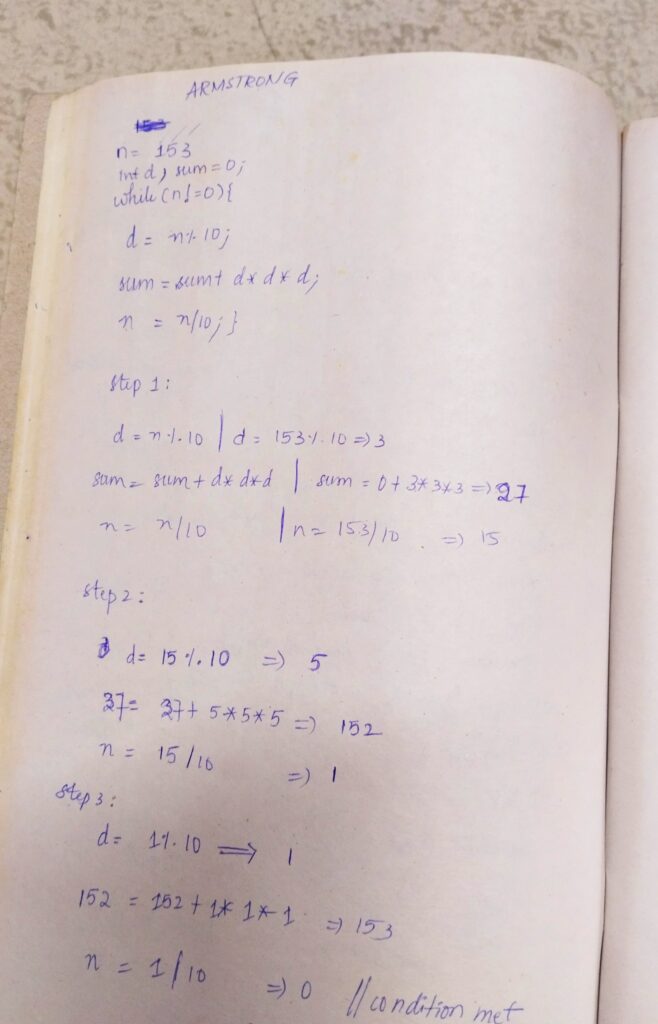 ARMSTRONG
n= 153
int d, sum=0;
while (n!=0){
d = n%10;
sum = sum+ d*d*d;
n = n/10; }
step 1:
d = n%10 | d = 153%10 => 3
sum = sum + d*d*d | sum = 0+3*3*3 => 27
n = n/10 | n = 153/10 => 15
step 2:
d = 15%10 => 5
27= 27+ 5*5*5 => 152
n = 15/10 => 1
step 3:
d = 1%10 => 1
152 = 152 + 1*1*1 => 153
n = 1/10 => 0 //condition met